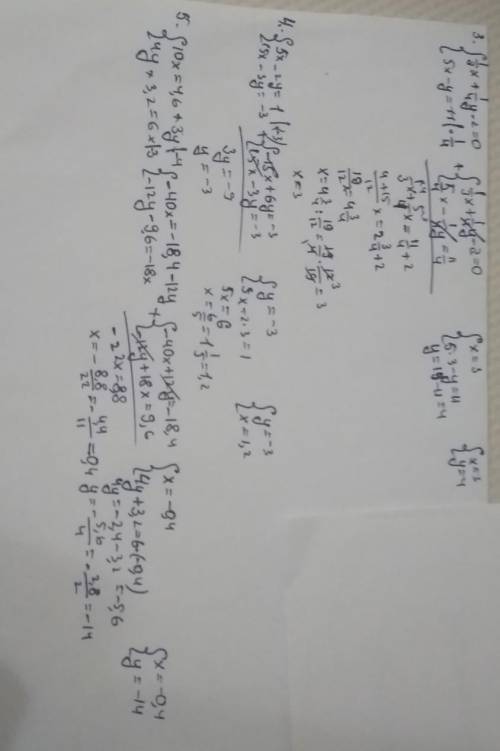 3. { 1/3x + 1/4y - 2 = 0
{ 5x - y = 11 | · 1/4
+ { 1/3x + 1/4y - 2 = 0
{ 5/4x - 1/4y = 11/4
1/3x + 5/4x = 11/4 + 2
4+15/12 x = 2 3/4 + 2
19/12 x = 4 3/4
x = 4 3/4 : 19/12 = 19/4 · 12/19 = 3
x = 3
{ x = 3
{ 5·3 - y = 11
y = 15 - 11 = 4
{ x = 3
{ y = 4
4. { 5x - 2y = 1 | (-3)
{ 15x - 3y = -3
+ { -15x + 6y = -3
{ 15x - 3y = -3
3y = -9
y = -3
{ y = -3
{ 5x + 2·3 = 1
5x = 6
x = 6/5 = 1 1/5 = 1,2
{ y = -3
{ x = 1,2
5. { 10x = 4,6 + 3y | -4
{ 4y + 3,2 = 6x | -3
{ -40x = -18,4 - 12y
{ -12y - 9,6 = -18x
+ { -40x + 12y = -18,4
{ -12y + 18x = 9,6
-22x = 8,8
x = - 8,8/22 = - 4,4/11 = -0,4
{ x = -0,4
{ 4y + 3,2 = 6·(-0,4)
4y = -2,4 - 3,2 = -5,6
y = - 5,6/4 = - 2,8/2 = -1,4
{ x = -0,4
{ y = -1,4